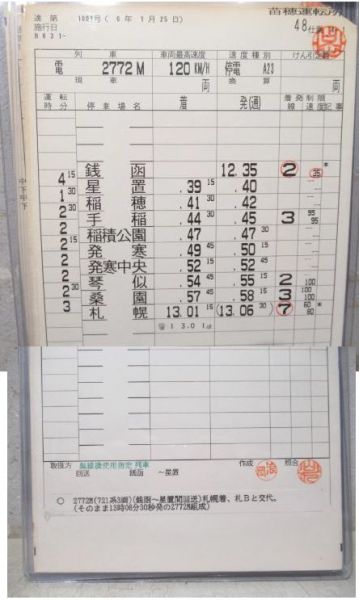 苗穂運転所
達 第 1091号 ( 6 年 1月 25日)
施行日 48仕業
R6.3.1-
列 車 車両最高速度 速度種別 けん引定数
電 2772M 120 KM/H 停電 A23
現 車 両 換 算 両
運転時分 停車場名 着 発(通) 着発線 制限速度 記事
銭 函 12.35 2 35 *
4 15 星 置 .39 15 .40
1 30 稲 穂 .41 30 .42
2 手 稲 .44 30 .45 3 95 95
2 稲積公園 .47 .47 30
2 15 発 寒 .49 45 .50
2 発寒中央 .52 15 .52
2 琴 似 .54 45 .55 15 2 100
2 30 桑 園 .57 45 .58 15 3 100 100
3 札 幌 13.01 15 (13.06) 30 7 60 60 *
13.01
中下中下
取扱方 無線機使用指定列車 作成 照合
回送 銭函 ～星置
○ 2772M(721系3両)(銭函～星置間回送)札幌着、札Bと交代。
(そのまま13時06分30秒発の2772M組成)